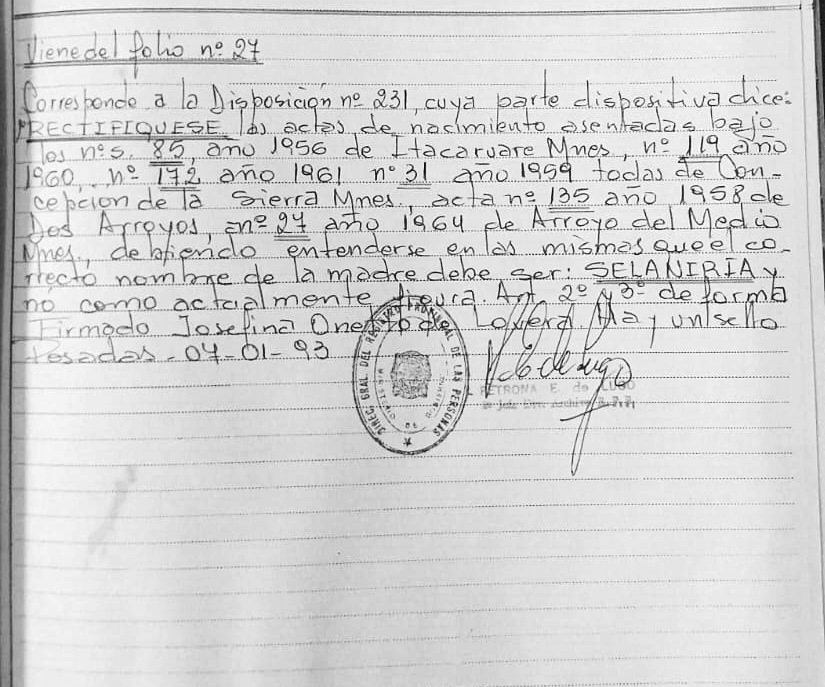 Viene del folio nº 27
Corresponde a la Disposición nº 231, cuya parte dispositiva dice:
RECTIFIQUESE, las actas de nacimiento asentadas bajo
los nºs. 85, año 1956 de Itacaruare Mnes, nº 119 año
1960, nº 172 año 1961 nº 31 año 1959 todas de Con-
cepcion de la Sierra Mnes., acta nº 135 año 1958 de
Dos Arroyos, nº 27 año 1964 de Arroyo del Medio
Mnes., debiendo entenderse en las mismas que el co-
rrecto nombre de la madre debe ser: SELANIRIA y
nó como actualmente figura. Art. 2º y 3º de forma
Firmado Josefina de Lovera. Hay un sello
Posadas - 04-01-93
DIREC. GRAL DEL REGISTRO PROVINCIAL DE LAS PERSONAS
PETRONA E. de LUGO